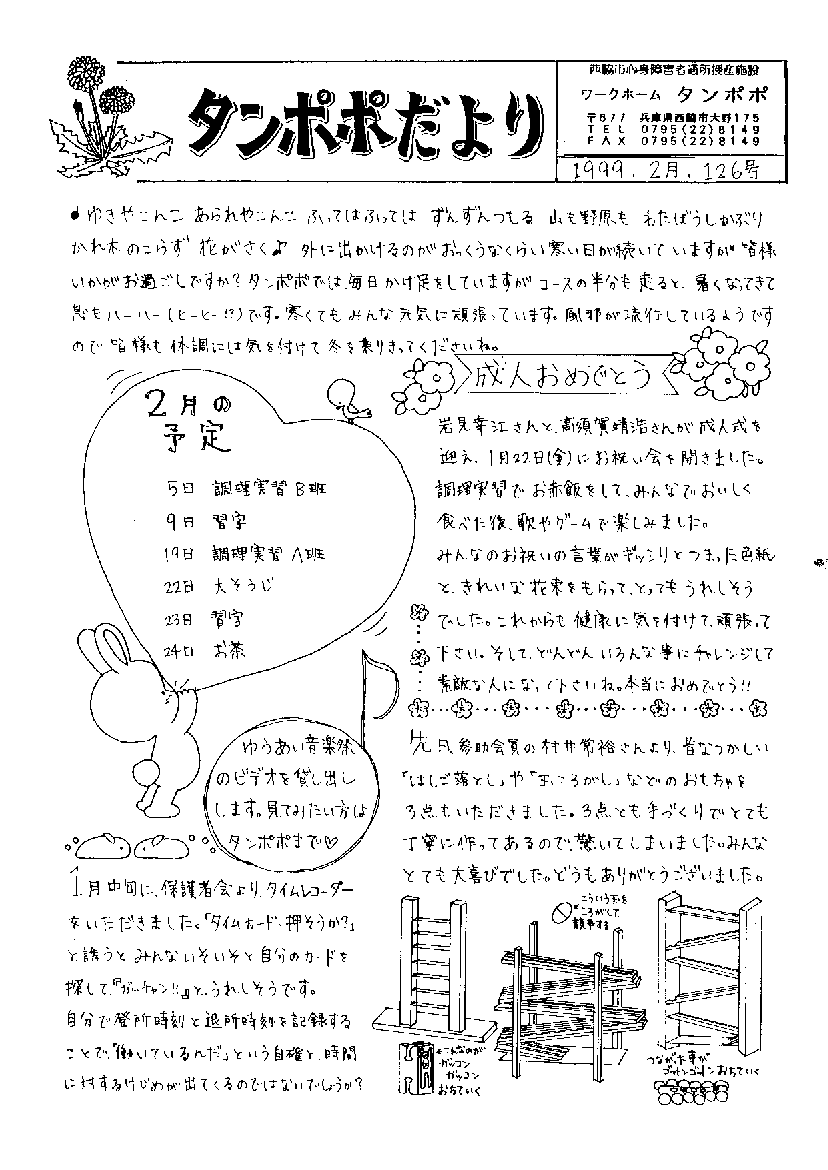 タンポポだより
西脇市心身障害者通所授産施設
ワークホーム タンポポ
〒677 兵庫県西脇市大野175
TEL 0795(22)8149
FAX 0795(22)8149
1999.2月.126号
♪ゆきやこんこ あられやこんこ ふってはふっては ずんずんつもる 山も野原も わたぼうしかぶり
かれ木のこらず 花がさく♪ 外に出かけるのがおっくうなくらい寒い日が続いていますが皆様
いかがお過ごしですか?タンポポでは、毎日かけ足をしていますがコースの半分も走ると、暑くなってきて
息もハーハー(ヒーヒー!?)です。寒くてもみんな元気に頑張っています。風邪が流行しているようです
ので皆様も体調には気を付けて冬を乗りきってくださいね。
2月の
予定
5日 調理実習B班
9日 習字
19日 調理実習A班
22日 大そうじ
23日 習字
24日 お茶
ゆうあい音楽祭
のビデオを貸し出し
します。見てみたい方は
タンポポまで♡
1月中旬に、保護者会より、タイムレコーダー
をいただきました。「タイムカード、押そうか?」
と誘うとみんないそいそと自分のカードを
探して、『ガッチャン!!』と、うれしそうです。
自分で登所時刻と退所時刻を記録する
ことで、「働いているんだ」という自確と、時間
に対するけじめが出てくるのではないでしょうか?
成人おめでとう
岩見幸江さんと、高須賀晴浩さんが成人式を
迎え、1月22日(金)にお祝い会を開きました。
調理実習でお赤飯をして、みんなでおいしく
食べた後、歌やゲームで楽しみました。
みんなのお祝いの言葉がギッシリとつまった色紙
と、きれいな花束をもらって、とってもうれしそう
でした。これからも健康に気を付けて、頑張って
下さい。そして、どんどんいろんな事にチャレンジして
素敵な人になって下さいね。本当におめでとう!!
先月、参助会員の村井常裕さんより、昔なつかしい
「はしご落とし」や「玉ころがし」などのおもちゃを
3点もいただきました。3点とも手づくりでとても
丁寧に作ってあるので、驚いてしまいました。みんな
とても大喜びでした。どうもありがとうございました。
こういう玉を
ころがして
競争する
←こんなのが
ガッコン
ガッコン
おちていく
つながた車が
ゴットンゴットンおちていく